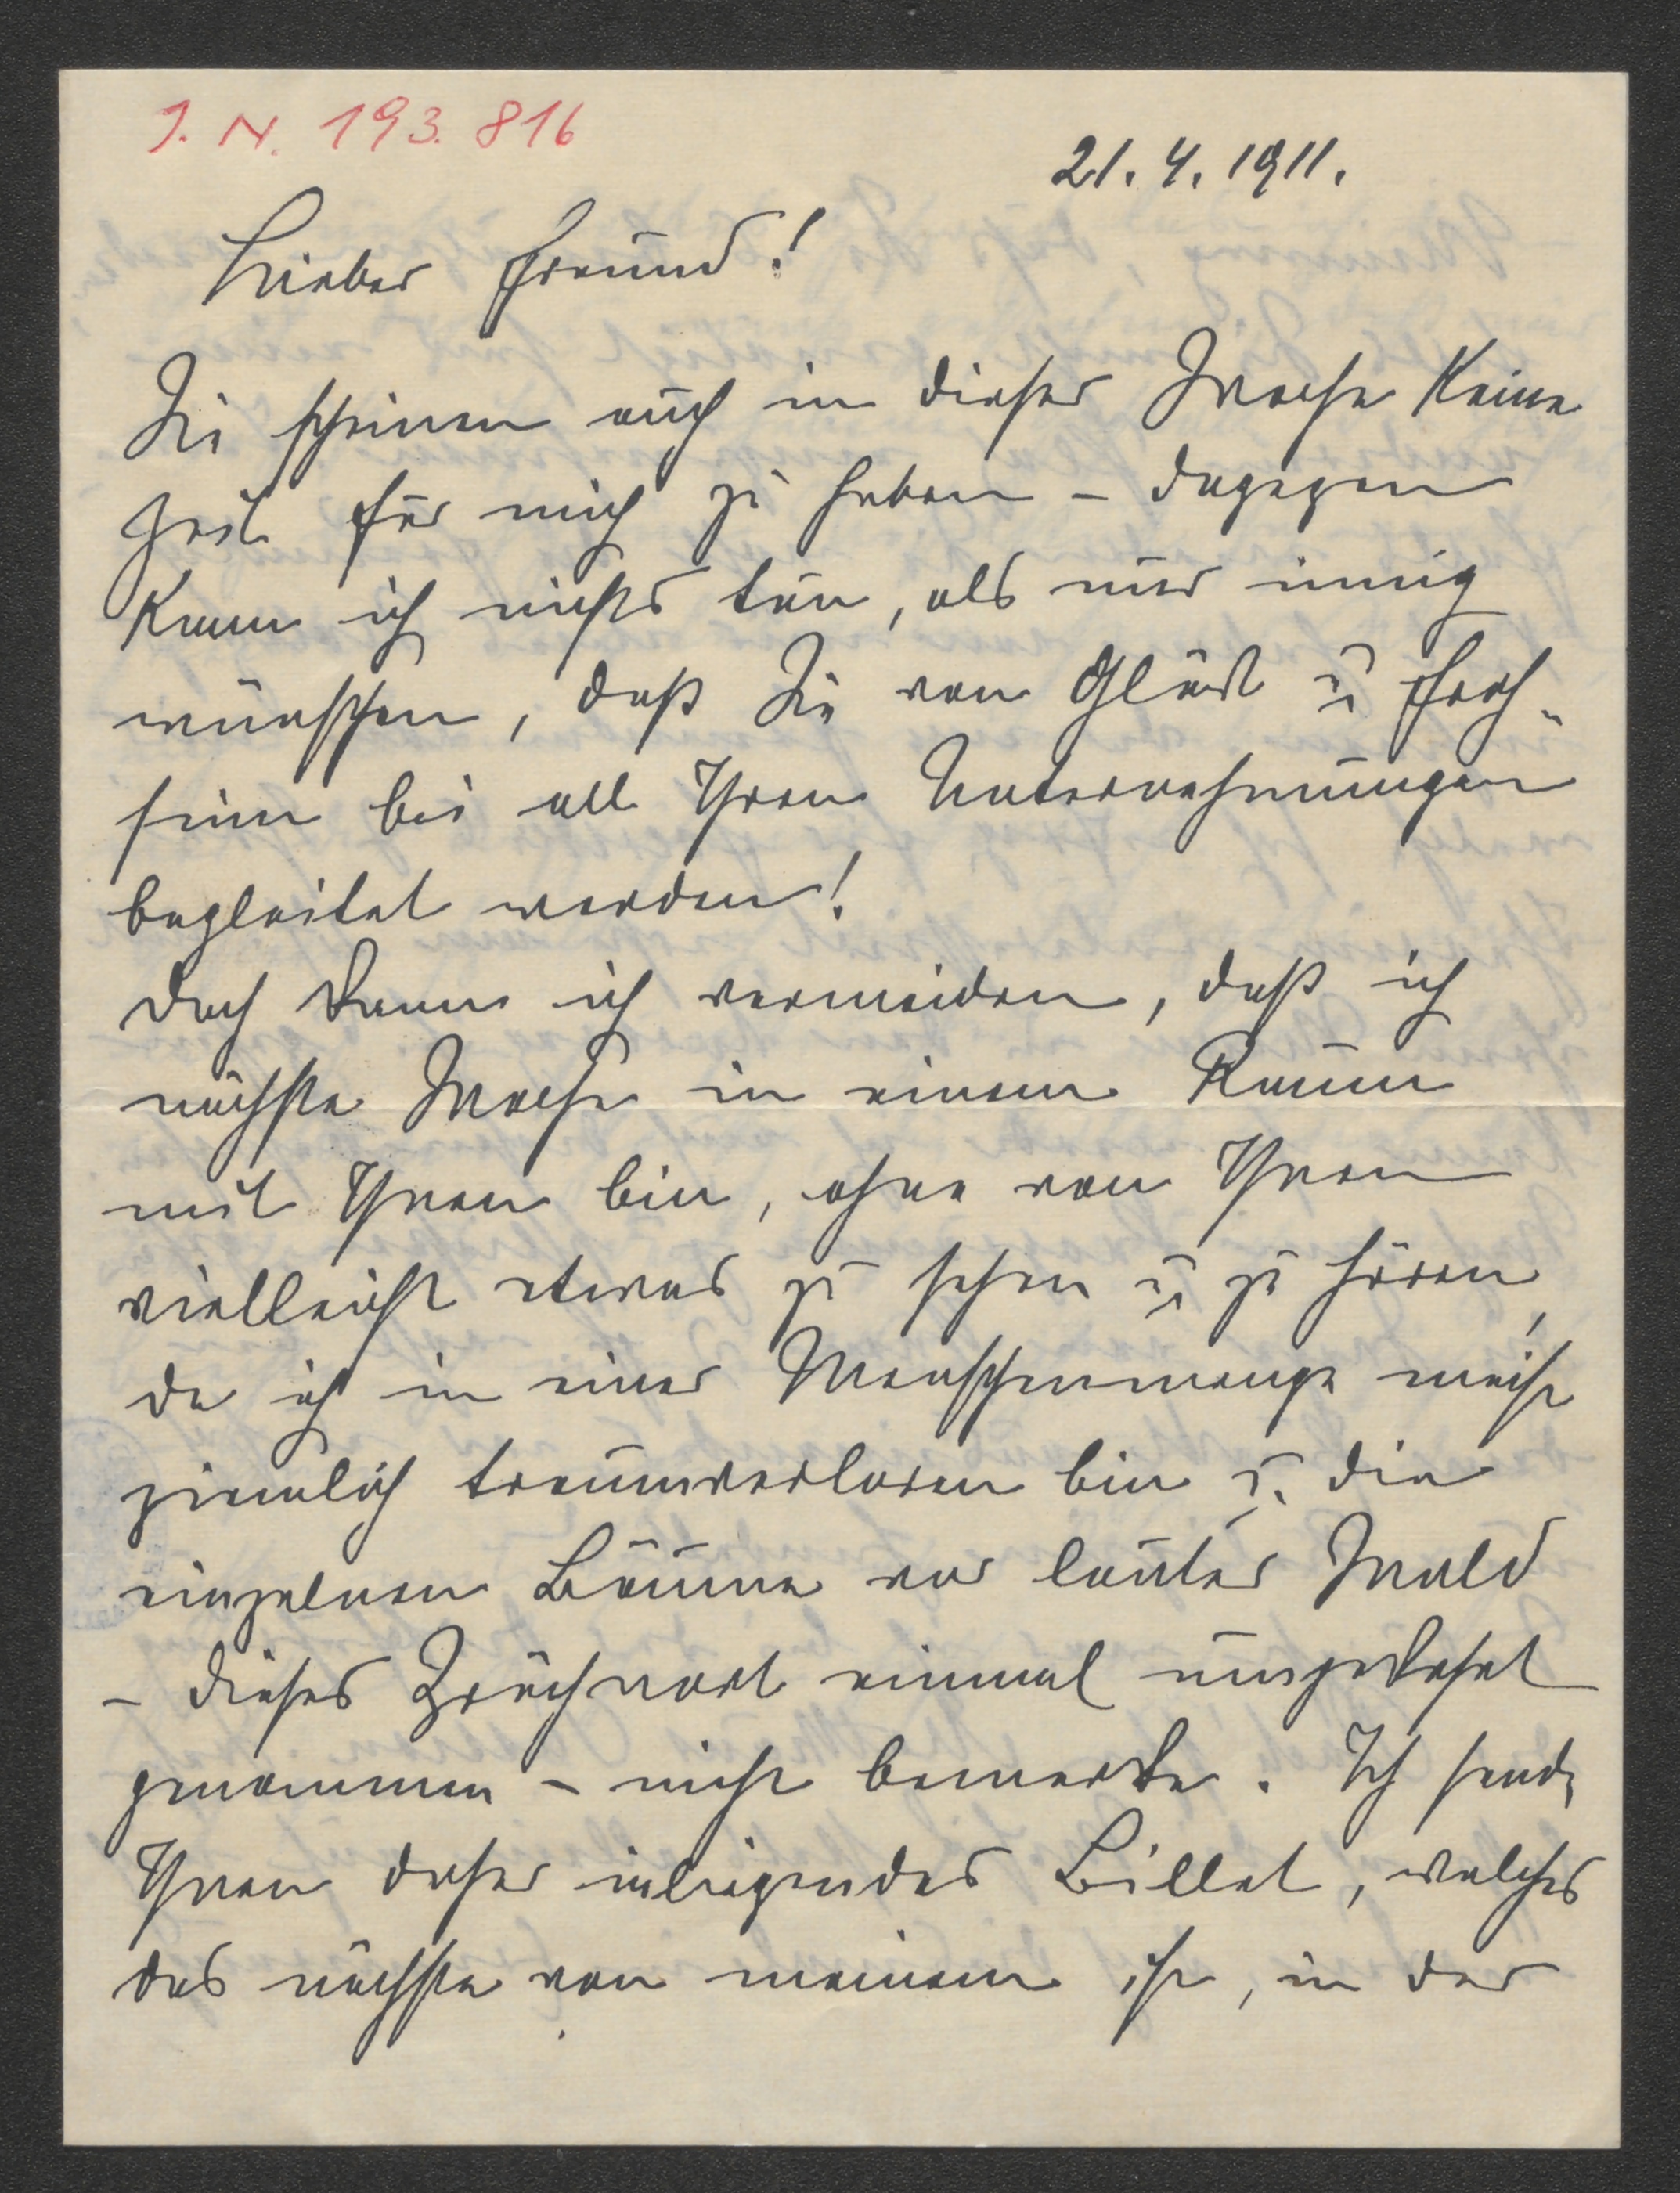 J. N. 193.816
21. 4. 1911.
Lieber Freund!
Sie scheinen auch in dieser Woche keine
Zeit für mich zu haben – dagegen
kann ich nichts tun, als nur innig
wünschen, daß Sie von Glück u Froh-
sinn bei all Ihren Unternehmungen
begleitet werden!
Doch kann ich vermeiden, daß ich
nächste Woche in einem Raum
mit Ihnen bin, ohne von Ihnen
vielleicht etwas zu sehen u zu hören,
da ich in einer Menschenmenge meist
ziemlich traumverloren bin u. die
einzelnen Bäume vor lauter Wald
– dieses Sprüchwort einmal umgekehrt
genommen – nicht bemerke. Ich sende
Ihnen daher inliegendes Billet, welches
das nächste von meinem ist, in der